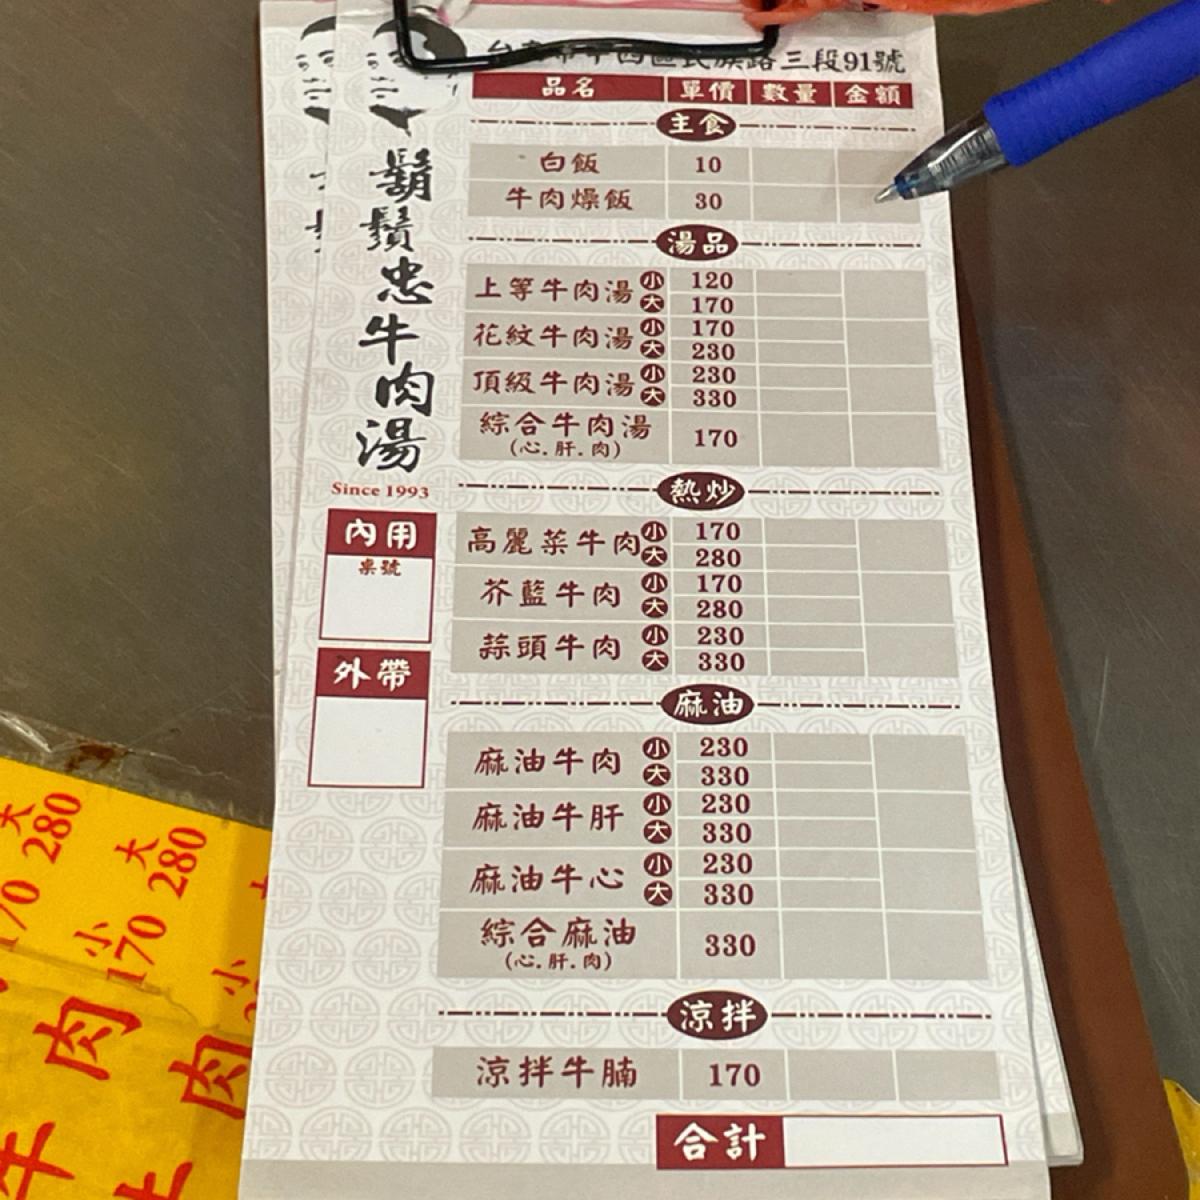 三段91號
鬍鬚忠牛肉湯
Since 1993
內用
桌號
外帶
品名 單價 數量 金額
主食
白飯 10
牛肉燥飯 30
湯品
上等牛肉湯 小 120
大 170
花紋牛肉湯 小 170
大 230
頂級牛肉湯 小 230
大 330
綜合牛肉湯 170
(心.肝.肉)
熱炒
高麗菜牛肉 小 170
大 280
芥藍牛肉 小 170
大 280
蒜頭牛肉 小 230
大 330
麻油
麻油牛肉 小 230
大 330
麻油牛肝 小 230
大 330
麻油牛心 小 230
大 330
綜合麻油 330
(心.肝.肉)
涼拌
涼拌牛腩 170
合計
大 280
大 280
小 170
小
肉
肉
牛